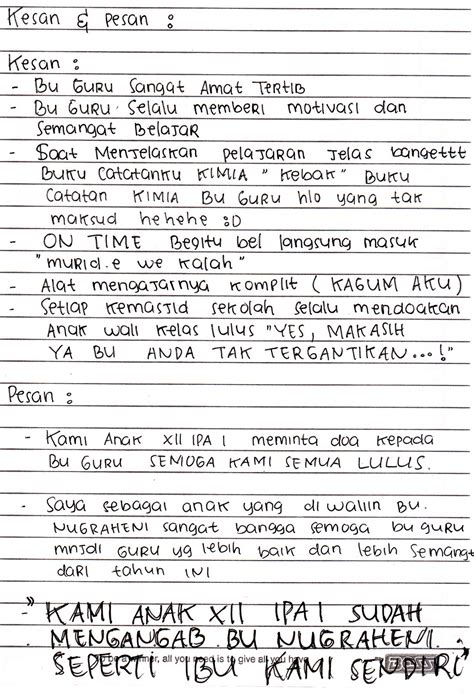 Kesan & pesan :
Kesan :
- Bu Guru Sangat Amat Tertib
- Bu Guru selalu memberi motivasi dan
Semangat Belajar
- Saat Menjelaskan pelajaran jelas bangettt
Buku Catatanku KIMIA " Kebak " Buku
Catatan KIMIA Bu Guru hlo yang tak
maksud hehehe :D
- ON TIME Begitu bel langsung masuk
"murid.e we kalah"
- Alat mengajarnya komplit ( KAGUM AKU )
- Setiap kemasjid sekolah selalu mendoakan
Anak wali kelas lulus "YES, MAKASIH
YA BU ANDA TAK TERGANTIKAN...!"
Pesan :
- Kami Anak XII IPA 1 meminta doa kepada
Bu Guru SEMOGA KAMI SEMUA LULUS.
- Saya sebagai anak yang di waliin Bu.
NUGRAHENI sangat bangga semoga bu guru
mnjdi GURU yg lebih baik dan lebih semangt
dari tahun INI
- "KAMI ANAK XII IPA 1 SUDAH
MENGANGAB BU NUGRAHENI.
SEPERTI IBU KAMI SENDIRI"
to be a winner, all you need is to give all you have